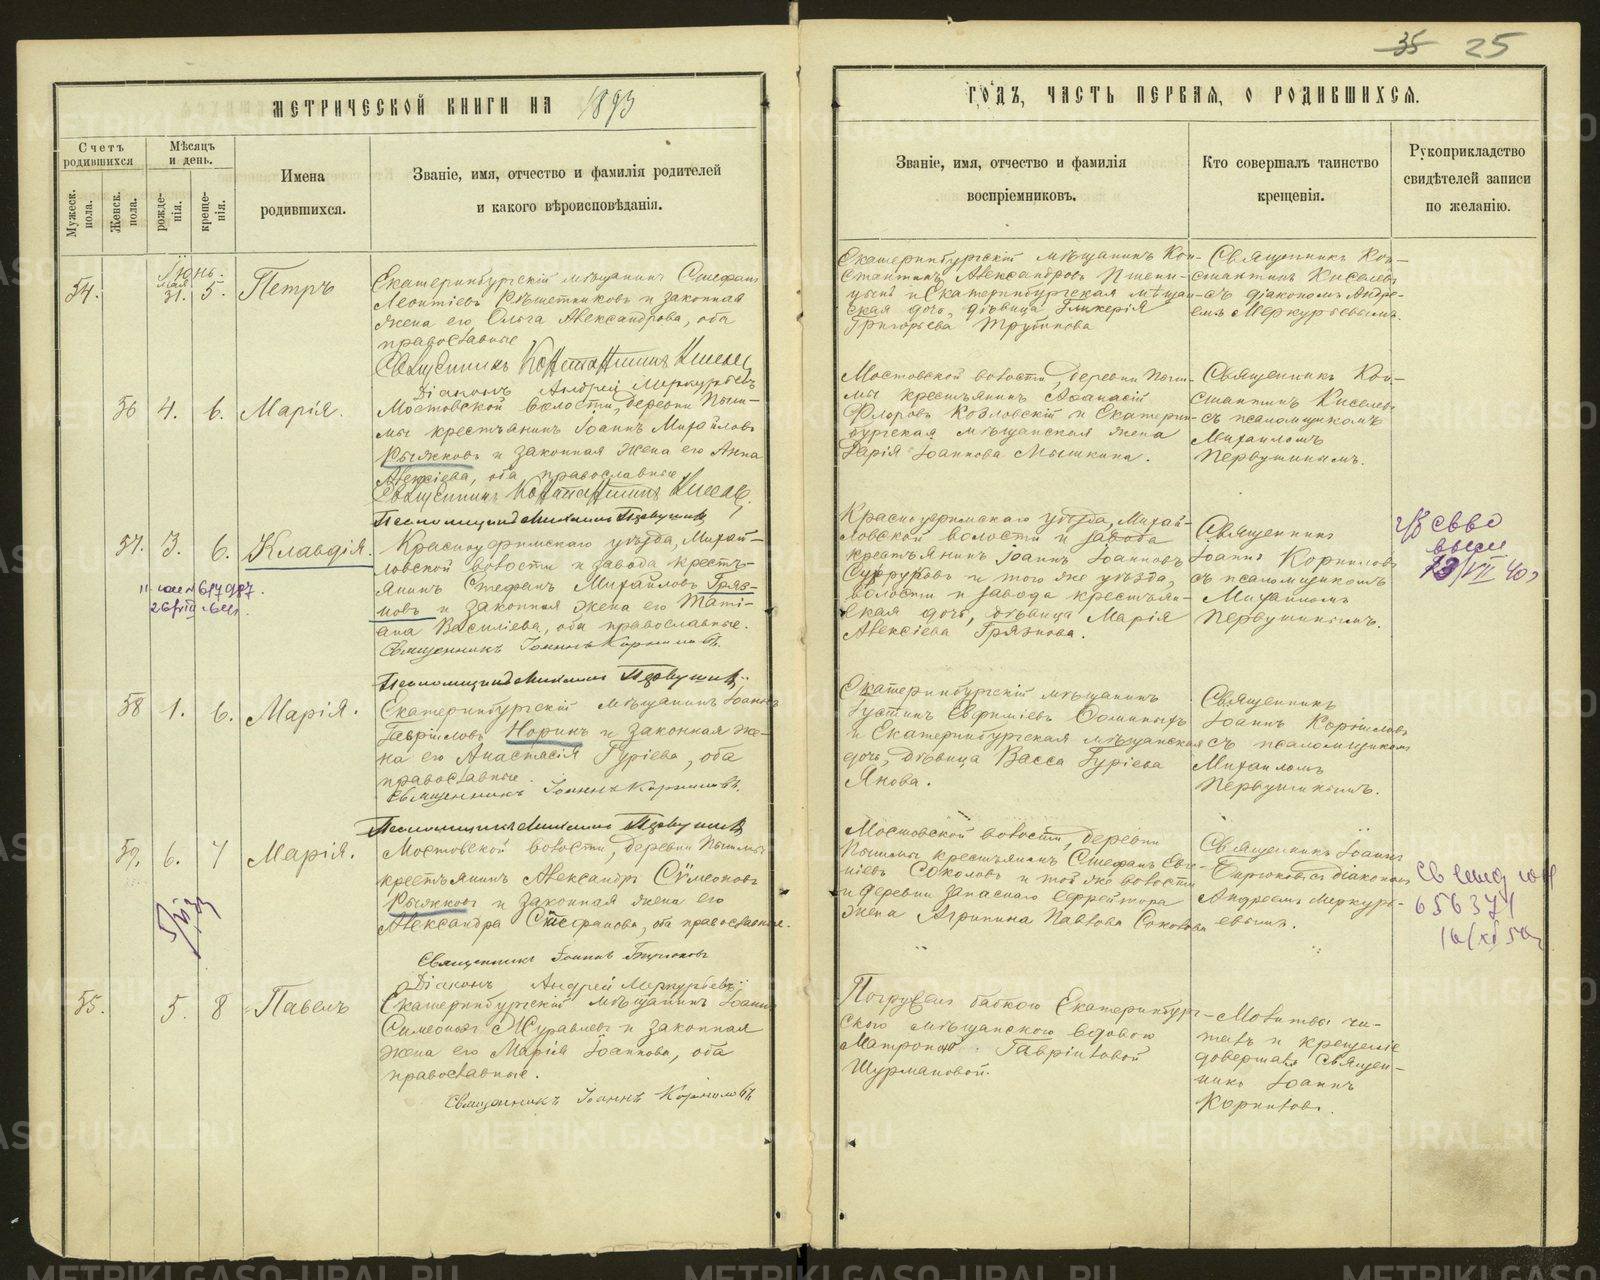 25
МЕТРИЧЕСКОЙ КНИГИ НА 1893
ГОДЪ, ЧАСТЬ ПЕРВАЯ, О РОДИВШИХСЯ.
Счетъ родившихся
Мѣсяцъ и день.
Мужеск. пола.
Женск. пола.
рожде-нія.
креще-нія.
Имена
родившихся.
Званіе, имя, отчество и фамилія родителей
и какого вѣроисповѣданія.
Званіе, имя, отчество и фамилія
воспріемниковъ.
Кто совершалъ таинство
крещенія.
Рукоприкладство
свидѣтелей записи
по желанію.
Іюнь.
54.
мая 31.
5.
Петръ
Екатеринбургскій мѣщанинъ Стефанъ
Леонтіевъ Рѣшетниковъ и законная
жена его Ольга Александрова, оба
православные
Священникъ Константинъ Киселев
Діаконъ Андрей Меркурьевъ
Екатеринбургскій мѣщанинъ Кон-
стантинъ Александровъ
и Екатеринбургская мѣщан-
ская дочь, дѣвица Гликерія
Григорьева Трубинова
Священникъ Кон-
стантинъ Киселевъ
съ діакономъ Андре-
емъ Меркурьевымъ.
56
4.
6.
Марія.
Мостовской волости, деревни Пыш-
мы крестьянинъ Іоаннъ Михайловъ
Рыжковъ и законная жена его Анна
Алексіева, оба православные
Священникъ Константинъ Киселев
Псаломщикъ Михаилъ Первушинъ
Мостовской волости, деревни Пыш-
мы крестьянинъ Афанасій
Флоровъ Козловскій и Екатерин-
бургская мѣщанская жена
Дарія Іоаннова Мышкина.
Священникъ Кон-
стантинъ Киселевъ
съ псаломщикомъ
Михаиломъ
Первушинымъ.
57.
3.
6.
Клавдія.
Красноуфимскаго уѣзда, Михай-
ловской волости и завода кресть-
янинъ Стефанъ Михайловъ Гряз-
новъ и законная жена его Тати-
ана Василіева, оба православные.
Священникъ Іоаннъ Корниловъ.
Псаломщикъ Михаилъ Первушинъ
Красноуфимскаго уѣзда, Михай-
ловской волости и завода
крестьянинъ Іоаннъ Іоанновъ
и того же уѣзда,
волости и завода крестьян-
ская дочь, дѣвица Марія
Алексіева Грязнова.
Священникъ
Іоаннъ Корниловъ
съ псаломщикомъ
Михаиломъ
Первушинымъ.
58
1.
6.
Марія.
Екатеринбургскій мѣщанинъ Іоаннъ
Гавріиловъ Норинъ и законная же-
на его Анастасія Гуріева, оба
православные.
Священникъ Іоаннъ Корниловъ.
Псаломщикъ Михаилъ Первушинъ
Екатеринбургскій мѣщанинъ
Іустинъ Евфиміевъ
и Екатеринбургская мѣщанская
дочь, дѣвица Васса Гуріева
Янова.
Священникъ
Іоаннъ Корниловъ
съ псаломщикомъ
Михаиломъ
Первушинымъ.
59.
6.
7
Марія.
Мостовской волости, деревни Пышмы
крестьянинъ Александръ Сѵмеоновъ
Рыжковъ и законная жена его
Александра Стефанова, оба православные.
Священникъ Іоаннъ Бирюковъ
Діаконъ Андрей Меркурьевъ
Мостовской волости, деревни
Пышмы крестьянинъ Стефанъ Евге-
ніевъ Соколовъ и той же волости
и деревни запаснаго ефрейтора
жена Агрипина Павлова Соколова
Священникъ Іоаннъ
Бирюковъ съ діакономъ
Андреемъ Меркурь-
евымъ.
55.
5.
8
Павелъ
Екатеринбургскій мѣщанинъ Іоаннъ
Симеоновъ Журавлевъ и законная
жена его Марія Іоаннова, оба
православные.
Священникъ Іоаннъ Корниловъ
Погруженъ бабкою Екатеринбург-
скою мѣщанскою вдовою
Матроною Гавріиловой
Шурмановой.
Молитвы чи-
талъ и крещеніе
довершалъ Священ-
никъ Іоаннъ
Корниловъ.